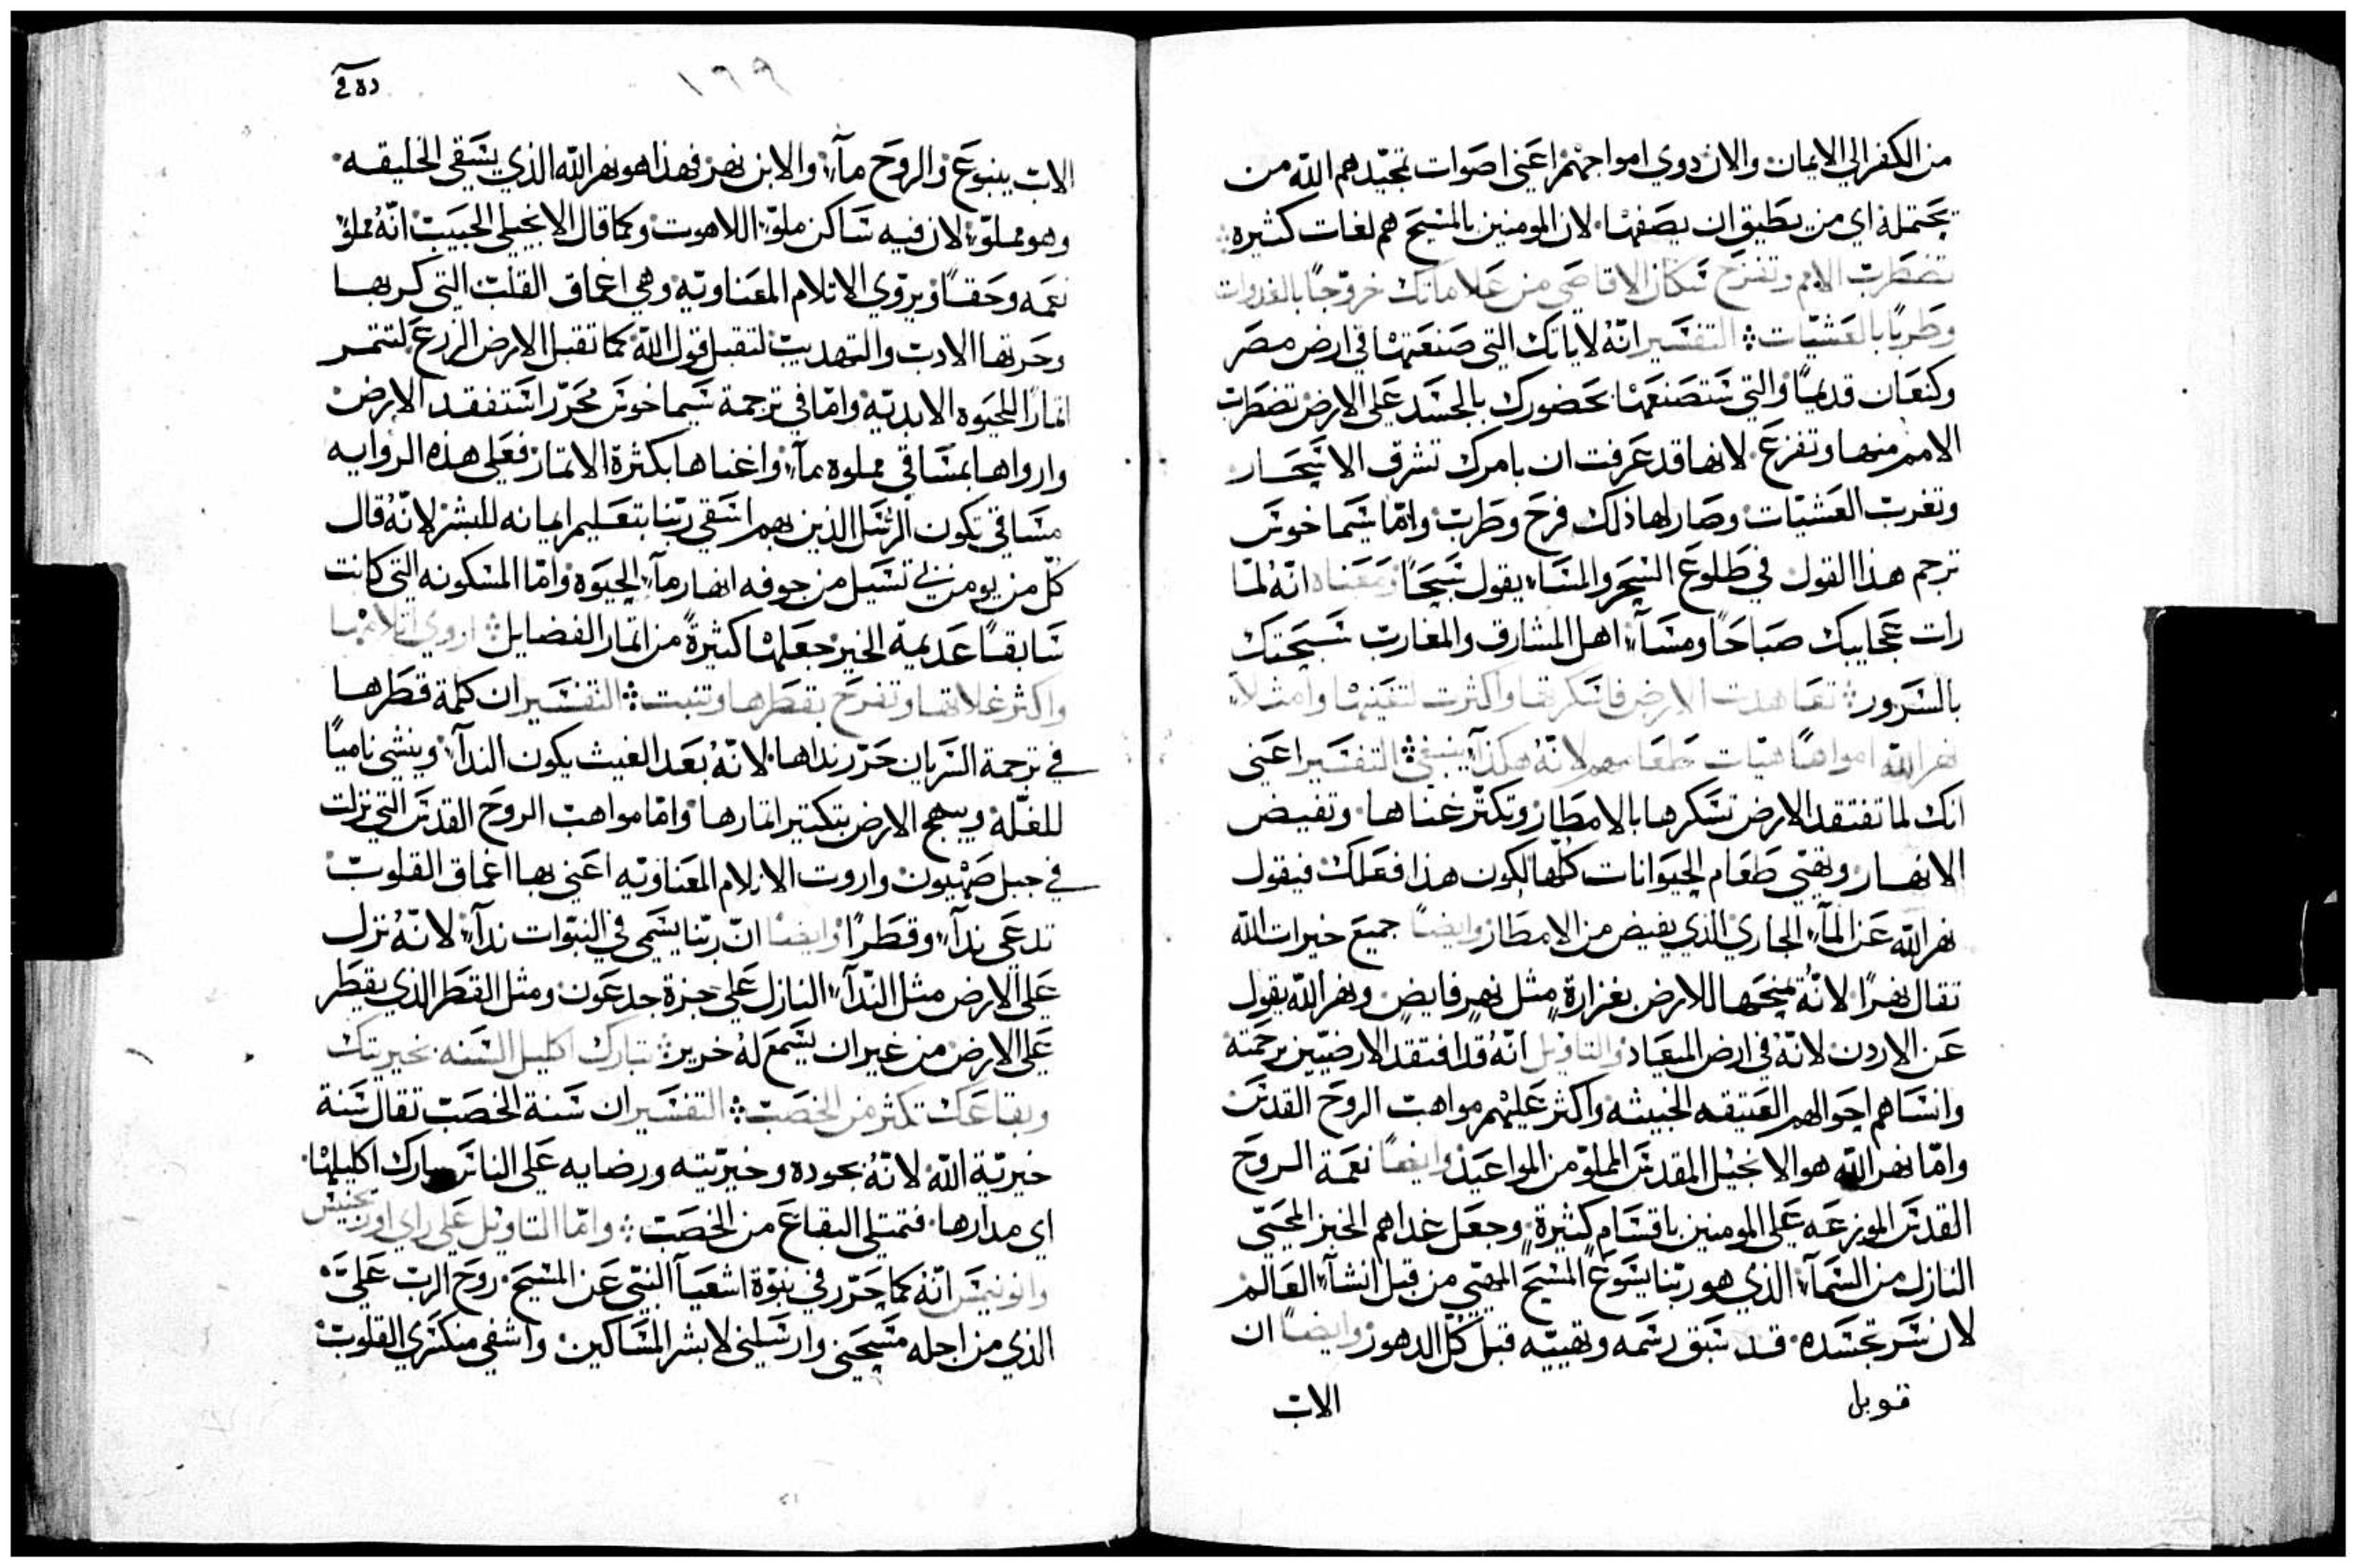 من الكفر الي الايمان والان دوي امواجهم اعني اصوات تمجيدهم الله من
يحتمله اي من يطيق ان يصفها لان المومنين بالمسيح هم لغات كثيره
تضطرب الامم وتفزع سكان الاقاصي من علاماتك خروجًا بالغدوات
وطربًا بالعشيات ⁘ التفسير انّهُ لاياتك التي صنعتها في ارض مصر
وكنعان قديمًا والتي ستصنعها بحضورك بالجسد علي الارض تضطرب
الامم منها وتفزع لانها قد عرفت ان بامرك تشرق الاسحار
وتغرب العشيات وصار لها ذلك فرح وطرب وامّا سيماخوس
ترجم هذا القول في طلوع السحر والمساء يقول سبحًا ومعناه انّهُ لمّا
رات عجايبك صباحًا ومسآء اهل المشارق والمغارب سبحتك
بالسرور ⁘ تعاهدت الارض فاسكرتها واكثرت لتغنيها وامتلاء
نهر الله امواهًا هيّات طعامهم لانّهُ هكذا ينبغي ⁘ التفسير اعني
انك لما تفتقد الارض تسكرها بالامطار وتكثر غناها وتفيض
الانهار وتهيّ طعام الحيوانات كلّها لكون هذا فعلك فيقول
نهر الله عن المآء الجاري الذي يفيض من الامطار وايضًا جميع خيرات الله
تقال نهرًا لانّهُ يمنحها للارض بغزارة مثل نهر فايض ونهر الله يقول
عن الاردن لانّهُ في ارض الميعاد والتاويل انّهُ قد افتقد الارضيّين برحمته
وانساهم احوالهم العتيقه الخبيثه واكثر عليهم مواهب الروح القدس
وامّا نهر الله هو الانجيل المقدس المملوّ من المواعيد وايضًا نعمة الروح
القدس الموزعه علي المومنين باقسام كثيرة وجعل غداهم الخبز المحيّي
النازل من السمآء الذي هو ربّنا يسوع المسيح المهيّ من قبل انشآء العالم
لان سر تجسده قد سبق رسمه وتهييّه قبل كلّ الدهور وايضًا ان
قوبل
الاب
١٦٩
الاب ينبوع والروح مآء والابن نهر فهذا هو نهر الله الذي يسقي الخليقه
وهو مملوّ لان فيه ساكن ملوّ اللاهوت وكما قال الانجيلي الحبيب انّهُ مملوّ
نعمه وحقًا ويروّي الاتلام المعناويّه وهي اعماق القلب التي كربها
وحرثها الادب والتهديب لتقبل قول الله كما تقبل الارض الزرع لتتمر
اتمارًا للحيوه الابديّه وامّا في ترجمة سيماخوس محرّر استفقد الارض
وارواها بمساقي مملوه مآء واغناها بكثرة الاتمار فعلي هذه الروايه
مساقي تكون الرسل الذين بهم استقي ربّنا بتعليم ايمانه للبشر لانّهُ قال
كلّ من يومن بي تسيل من جوفه انهار مآء الحيوه وامّا المسكونه التي كانت
سابقًا عديمة الخير جعلها كثيرةً من اتمار الفضايل ⁘ اروي اتلامها
واكثر غلاتها وتفرح بقطرها وتنبت ⁘ التفسير ان كلمة قطرها
في ترجمة السريان حرّر نداها لانّهُ بعد الغيث يكون الندآء وينشي ناميًا
للغلّه ويبهج الارض بتكتير اتمارها وامّا مواهب الروح القدس التي نزلت
في جبل صهيون واروت الاتلام المعناويّه اعني بها اعماق القلوب
تدعي ندآء وقطرًا وايضًا انّ ربّنا يسمي في النبوّات ندآء لانّهُ نزل
علي الارض مثل النّدآء النازل علي جزة جدعون ومثل القطر الذي يقطر
علي الارض من غير ان يسمع لهُ خرير ⁘ تبارك اكليل السنه بخيريتك
وبقاعك تكثر من الخصب ⁘ التفسير ان سنة الخصب تقال سنة
خيريّة الله لانّهُ بجوده وخيريّته ورضايه علي الناس بارك اكليلها
اي مدارها فتمتلي البقاع من الخصب ⁘ وامّا التاويل علي راي اوريجنيس
انّهُ كما حرّر في نبوّة اشعيآ النبّي عن المسيح روح الرب عليّ
الذي من اجله مسحني وارسلني لابشر المساكين واشفي منكسري القلوب